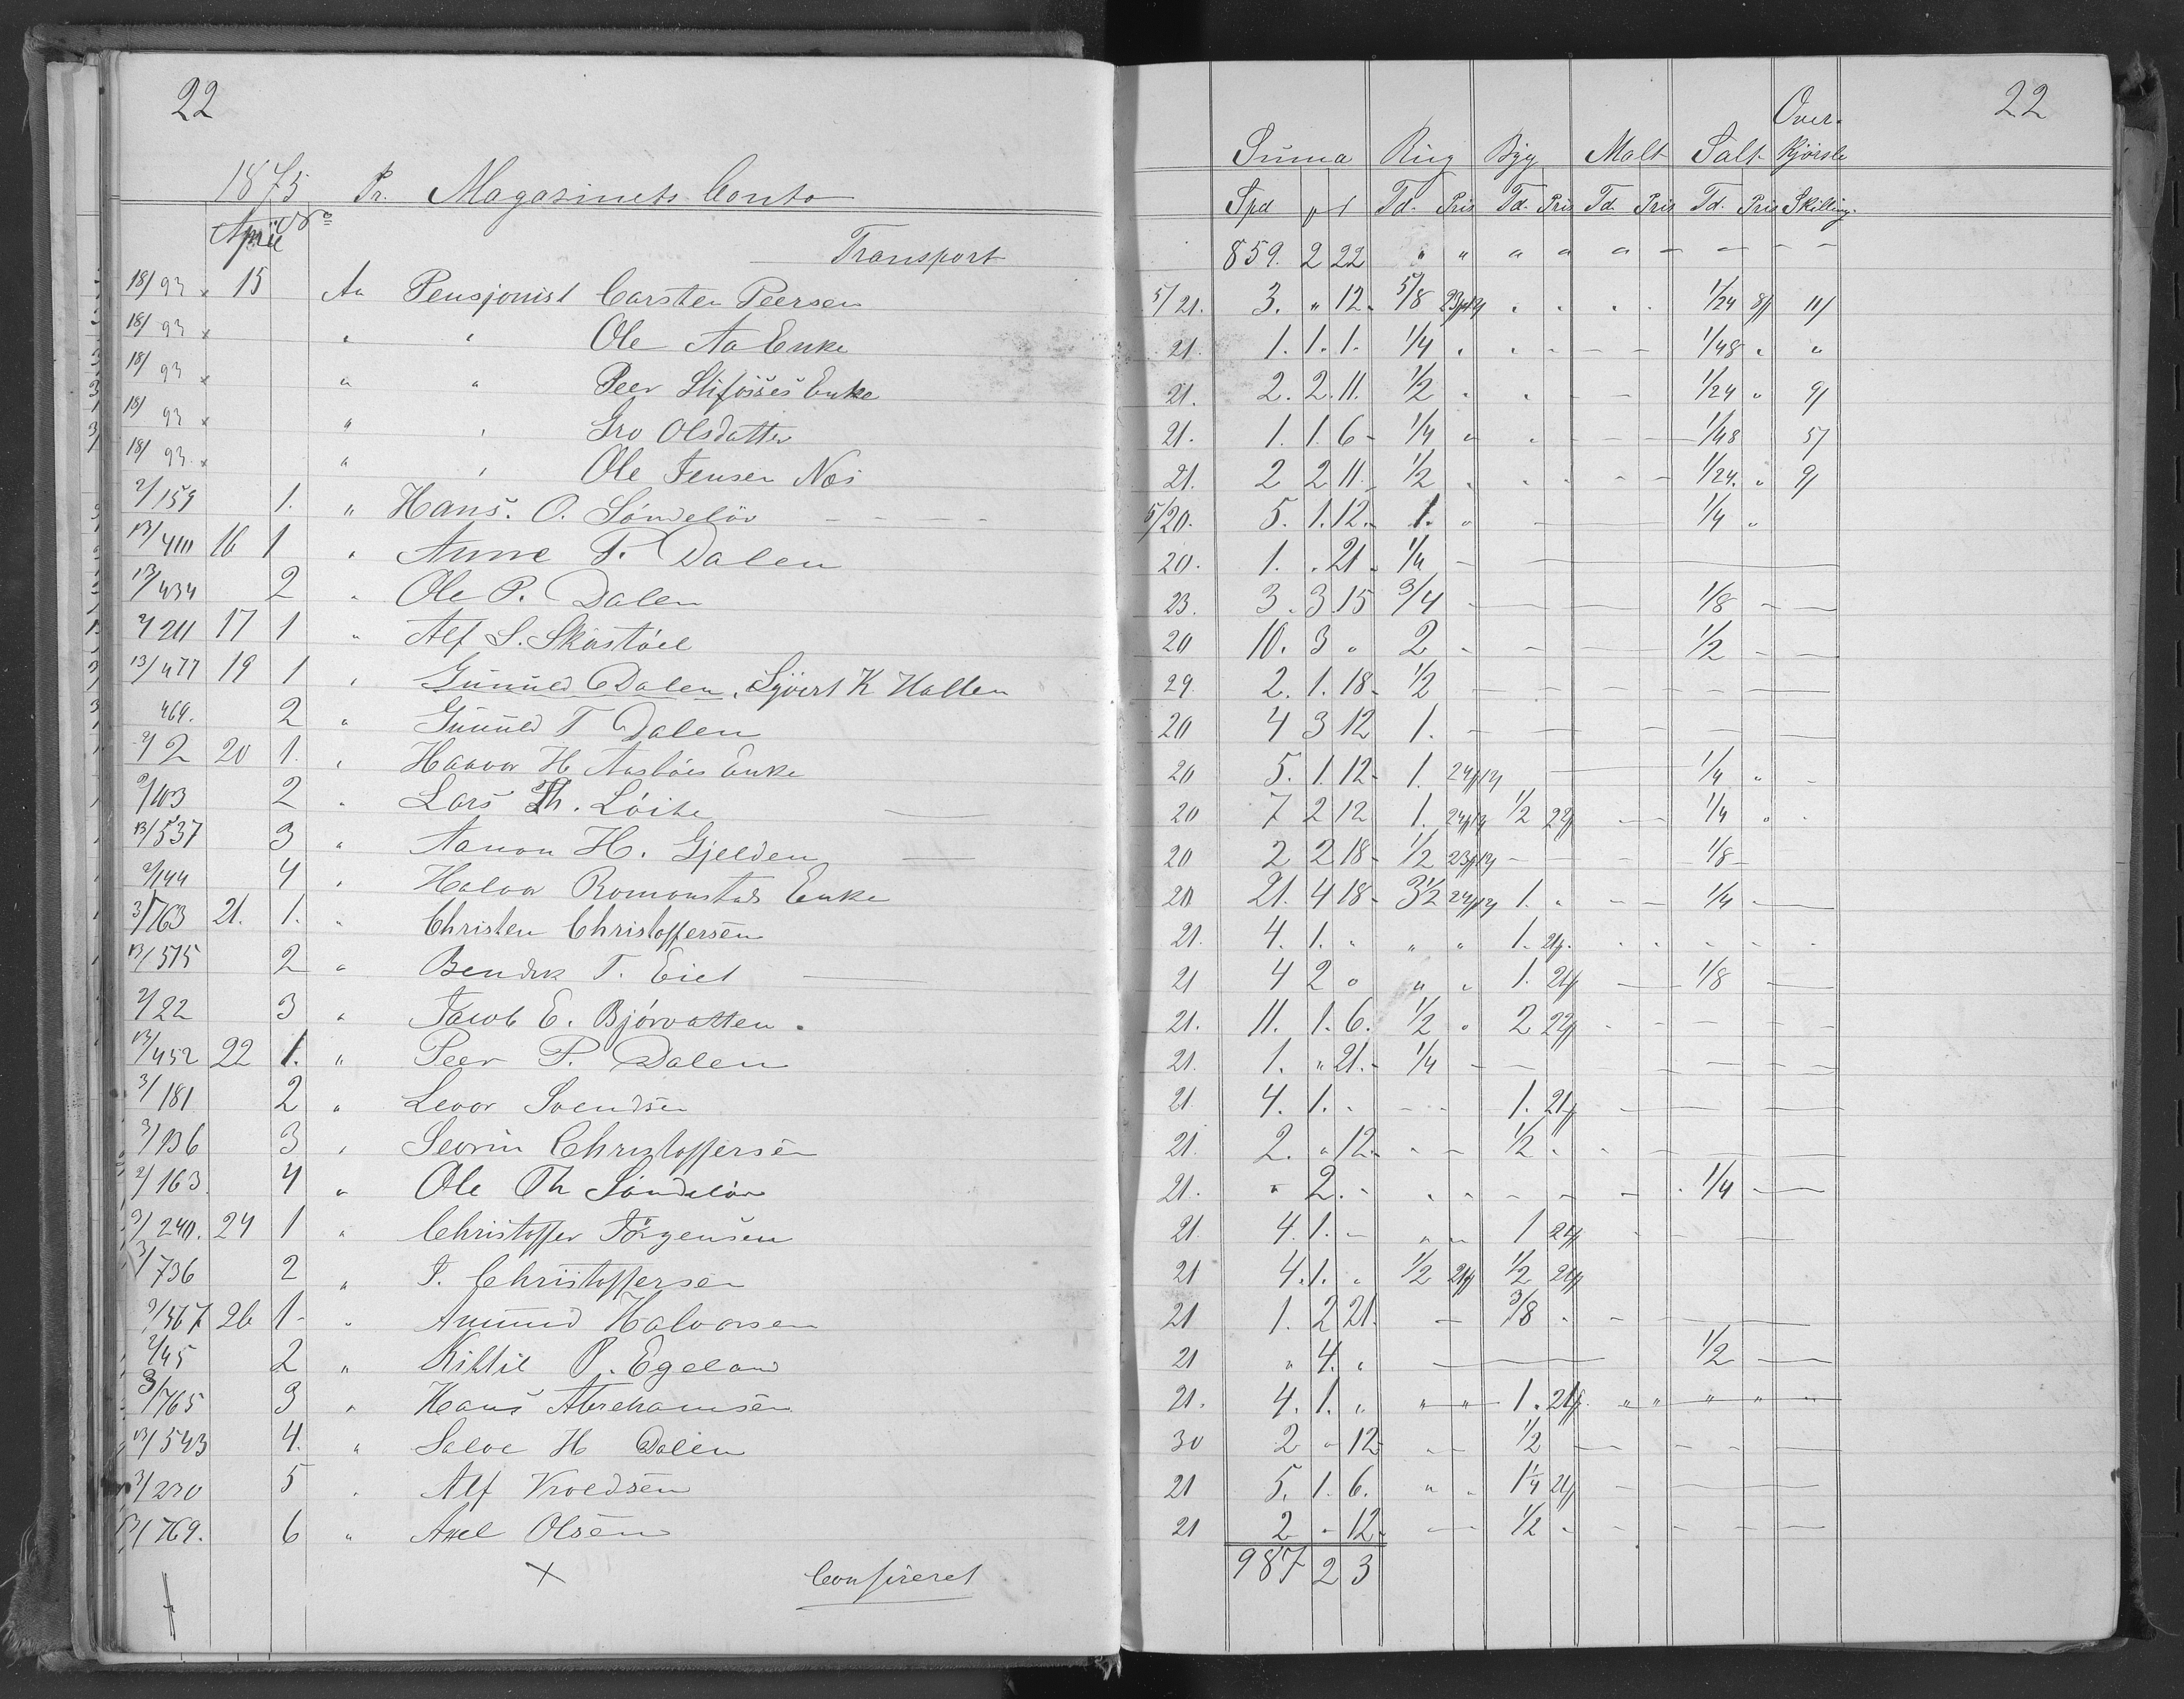 22
1875 Pr. Magasinets Conto
April No
Transport
18/93 x 15 An Pensjonist Carsten Peersen
18/93 x " " Ole Aa Enke
18/93 x " " Peer Stifosses Enke
18/93 x " " Gro Olsdatter
18/93 x " " Ole Jensen Næs
2/159 1. " Hans. O. Söndelöv
13/410 16 1 " Anne P. Dalen
13/434 2 " Ole P. Dalen
2/211 17 1 " Alf S. Skastöel
13/477 19 1 " Gunuld Dalen, Sjövert K Hallen
469. 2 " Gunuld T Dalen
2/2 20 1. " Haavor H Aasböes Enke
2/103 2 " Lars Th. Löite
13/537 3 " Aanon H. Gjelden
2/144 4 " Halvor Romonstads Enke
3/763 21. 1. " Christen Christoffersen
13/515 2 " Bendix T. Eiet
2/22 3 " Jacob E. Bjórvatten.
13/452 22 1. " Peer P. Dalen
3/181 2 " Levor Svendsen
3/136 3 " Sevrin Christoffersen
2/163 4 " Ole Th Söndelöv
3/240. 24 1 " Christoffer Jörgensen
3/736 2 " T. Christoffersen
3/367 26 1 " Amund Halvorsen
2/45 2 " Kittil P. Egeland
3/765 3 " Hans Abrehamsen
13/543 4. " Salve H Dalen
3/230 5 " Alf Kroldsen
13/769. 6 " Axel Olsen
x Confereret
22
Over-
Summa Rug Byg Malt Salt kjörsle
Spd Td. Pris Td. Pris Td. Pris Td. Pris Skilling.
859. 2 22 " " " " " - - - -
5/21. 3. " 12 - 5/8 " " " " 1/24 11/
21. 1. 1. 1. 1/4 " " - - - 1/48 " "
21. 2. 2. 11. 1/2 " " - - 1/24 " 9/
21. 1. 1. 6 - 1/4 " " - - - 1/48 5/
21. 2 2 11. 1/2 " " " - - 1/24. " 9/
5/20. 5. 1. 12. - 1. " - 1/4 "
20. 1. " 21 - 1/4 -
23. 3. 3 15 3/4 - - - - 1/8 - -
20 10. 3 " 2 - - - 1/2 - -
29. 2. 1. 18 - 1/2 - - - - - - -
20 4 3 12 1. - - - - - -
20 5. 1. 12 - 1. - 1/4 " -
20 7 2 12 1. 1/2 - - 1/4 " -
20 2 2 18 - 1/2 - - - 1/8 -
20 21. 4 18 - 3 1/2 1. " - - 1/4 - -
21. 4. 1. " " " 1. " " " " "
21 4 2 " " " 1. - - 1/8 - -
21. 11. 1. 6. 1/2 " 2 - - - - -
21. 1. " 21. - 1/4 - - - - -
21 4. 1. " - - 1. - - - -
21. 2. " 12. - " - 1/2 " " - - -
21. " 2. - " " - - - 1/4 - -
21 4. 1. - " " 1 - - -
21 4. 1. " 1/2 1/2
21 1. 2 21. - 3/8 " - -
21 " 4. " - 1/2 - -
21. 4. 1. " " " 1. " " " " "
30 2 " 12 - " - 1/2 - - - - -
21 5. 1. 6. " " 1 1/4 - -
21 2 " 12 - - - 1/2 - - - - - -
987 2 3